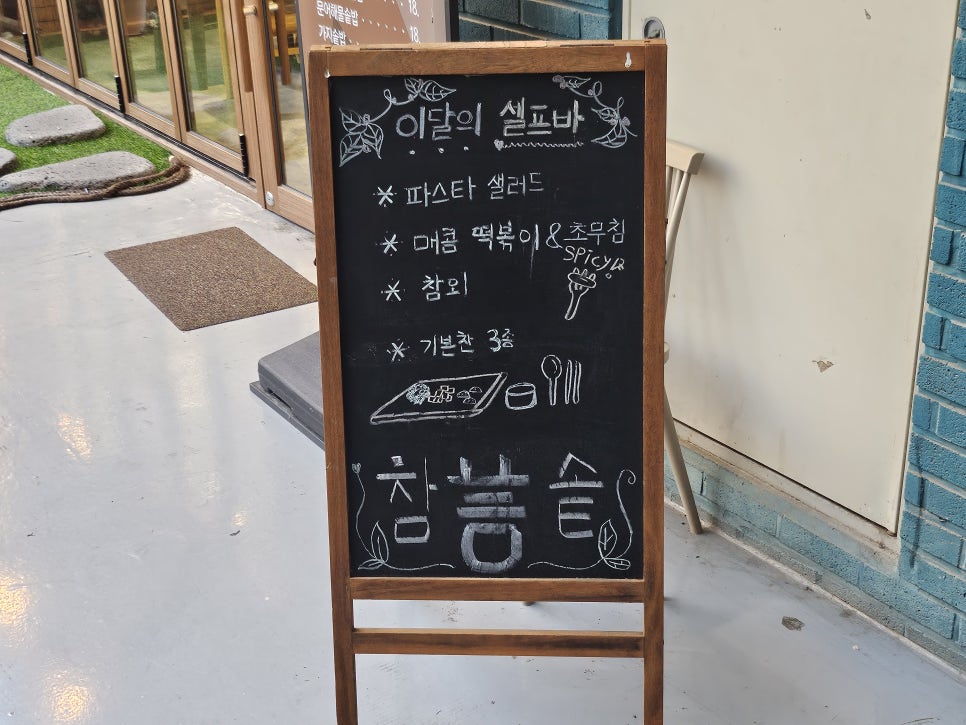 문어해물솥밥 . . . . . . . 18.
가지솥밥 . . . . . . . 18
이달의 셀프바
* 파스타 샐러드
* 매콤 떡볶이 & 초무침
SPICY
* 참외
* 기본찬 3종
참봄솥